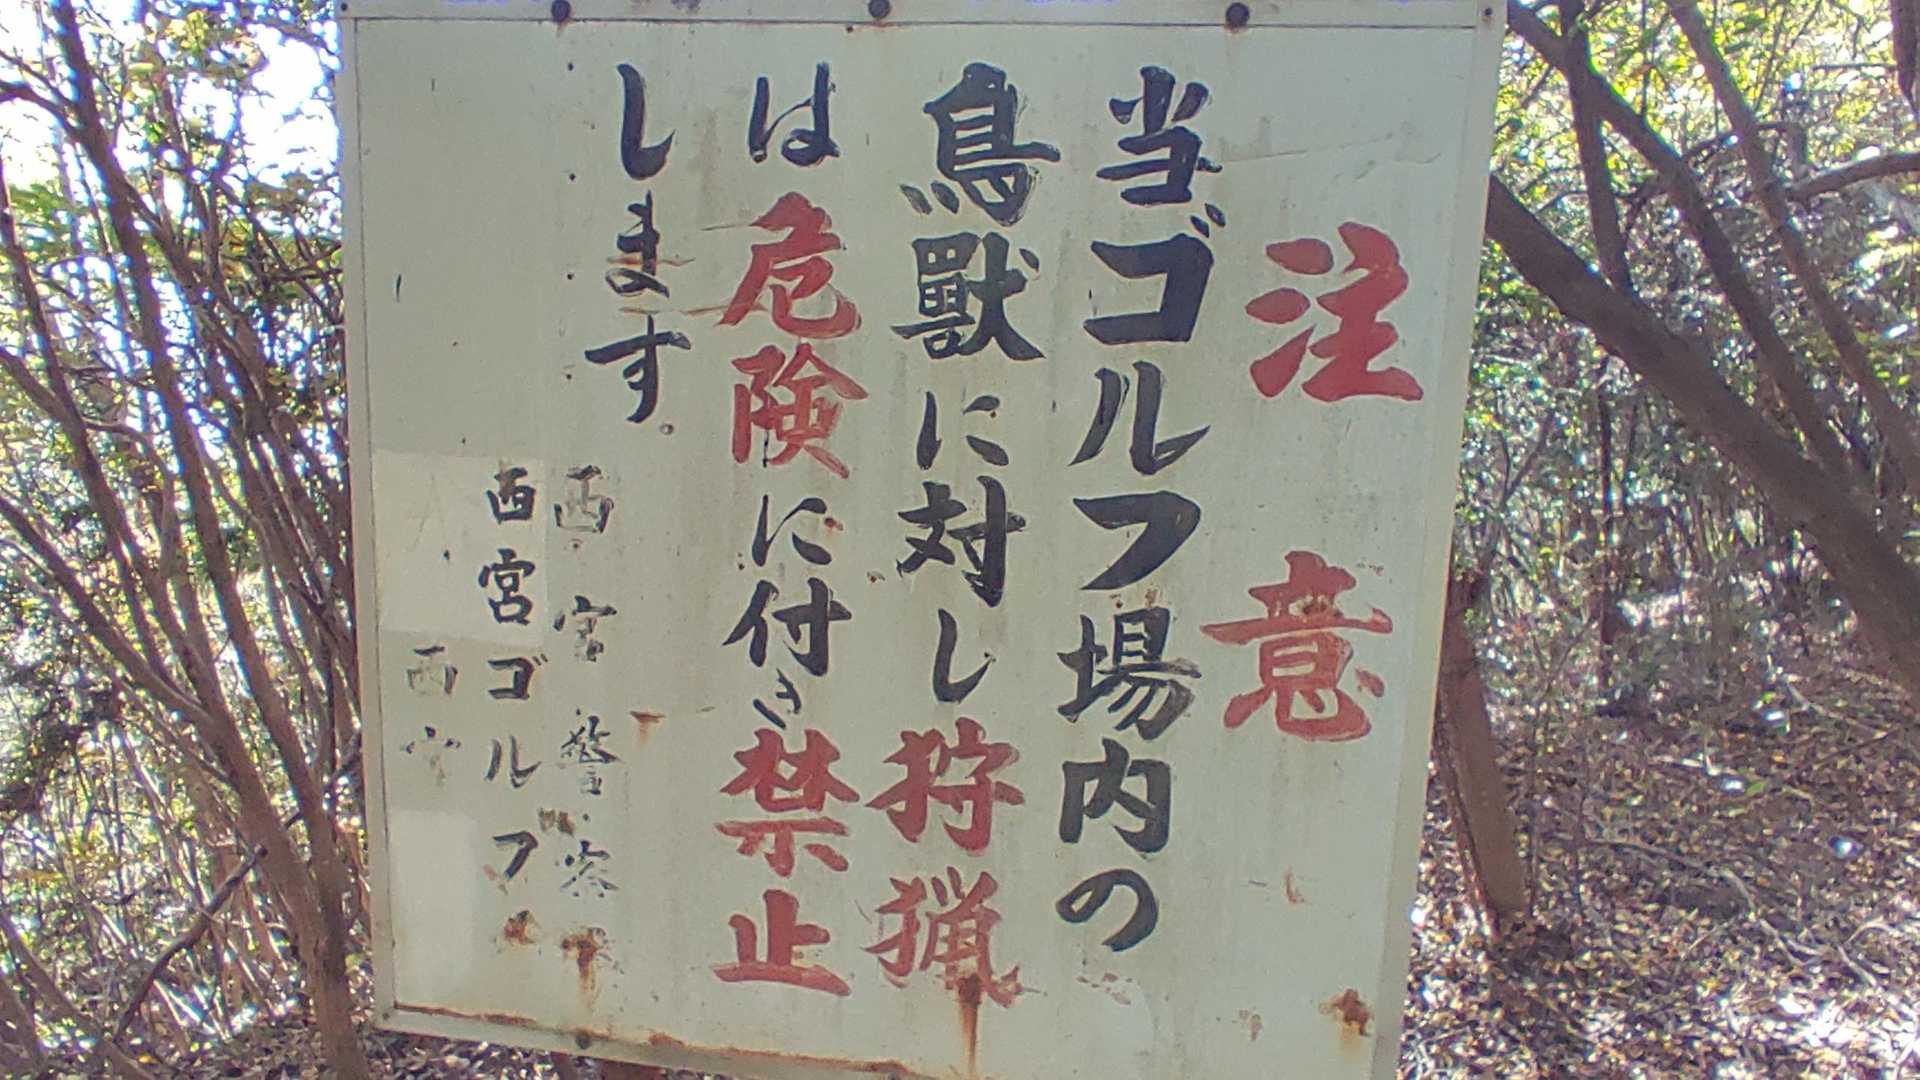 注意
当ゴルフ場内の
鳥獣に対し狩猟
は危険に付き禁止
します。
西宮警察
西宮ゴルフ
西宮